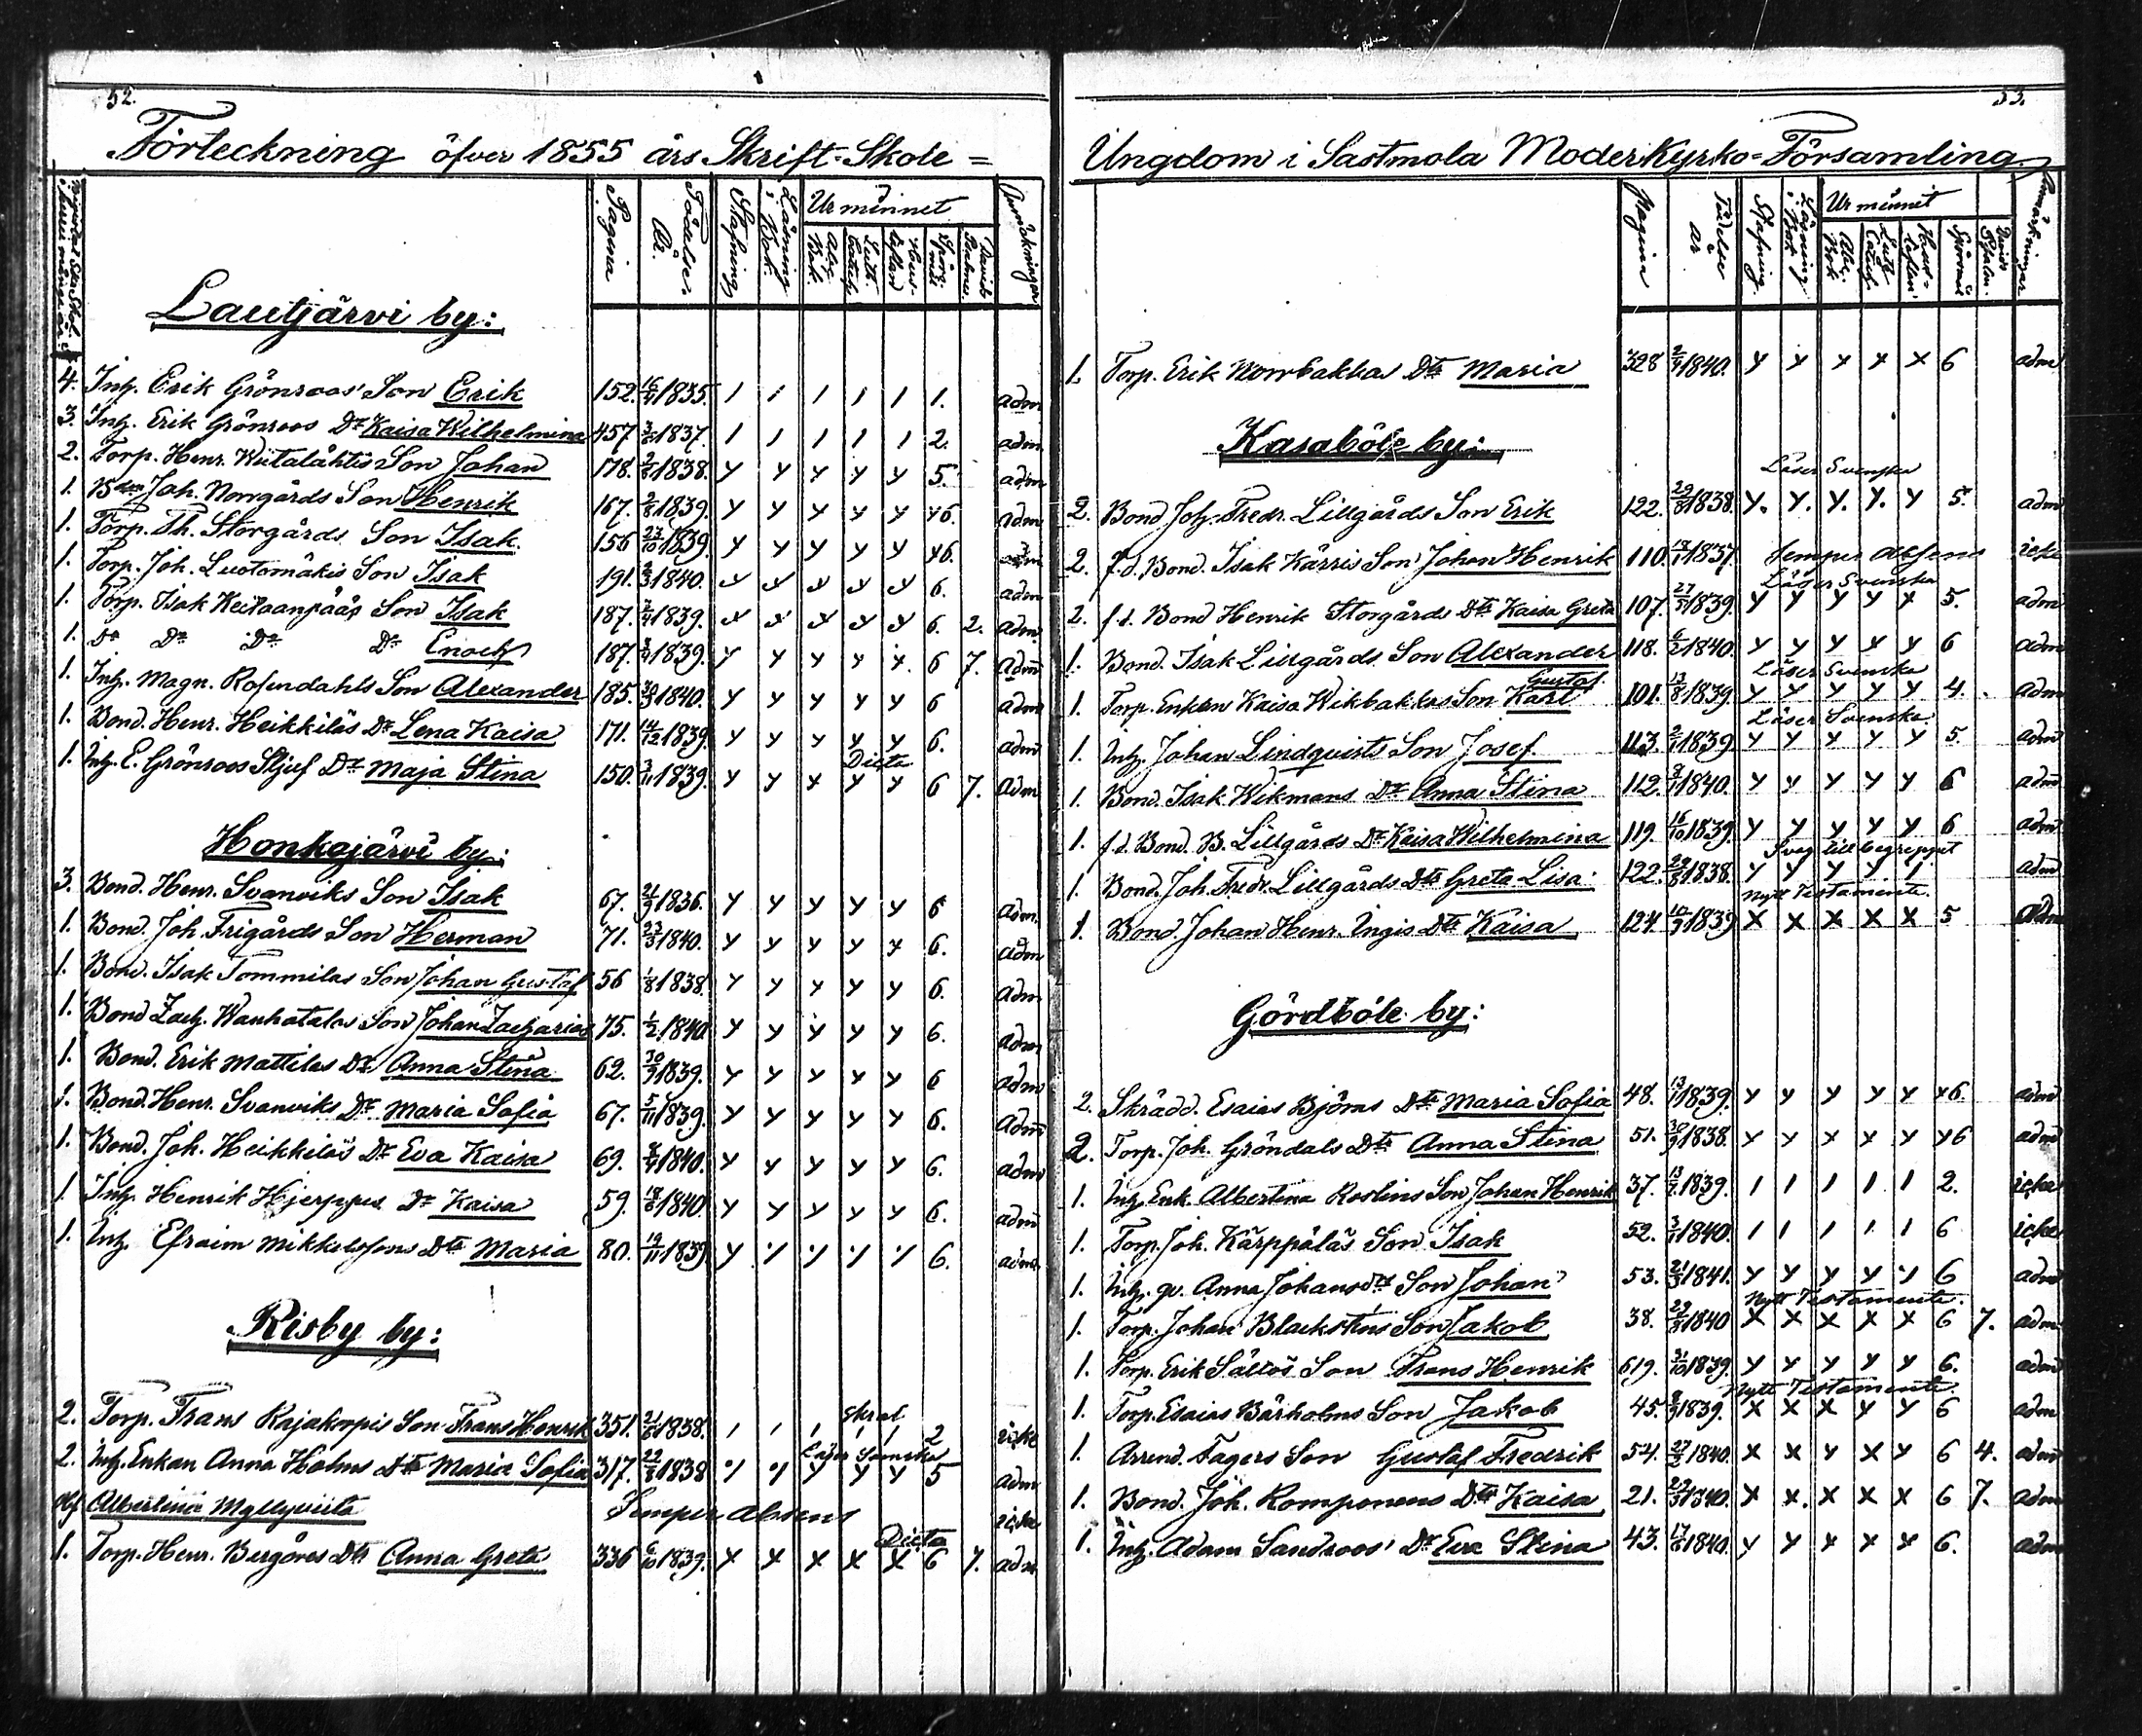 52.
Förteckning öfver 1855 års Skrift-Skole=
Pagina
Födelse År.
Stafning
Läsning i Bok.
Ur minnet
Abc Bok.
Luth. Cateches
Hus-taflan
Spörsmål
Davids Psalmer.
Anmärkningar
Lautjärvi by:
4. Inh. Erik Grönroos' Son Erik 152. 16/4 1835. / / / / / 1. adm
3. Inh. Erik Grönroos Dr Kaisa Wilhelmina 457 1837. / / / / / 2. adm
2. Torp. Henr. Wiitalähtis Son Johan 178. 1838. y y y y y 5. adm
1. Bond Joh. Norrgårds Son Henrik 167. 1839. y y y y y y6. adm
1. Torp. Th. Storgårds Son Isak. 156 23/10 1839. y y y y y y6. adm
1. Torp. Joh. Luotomäkis Son Isak 191. 1840. y y y y y 6. adm
1. Torp. Isak Keitaanpääs Son Isak 187. 1839. y y y y y 6. 2. adm
1. Dr Dr Dr Dr Enoch 187. 1839. y y y y y. 6 7. adm
1. Inh. Magn. Rosendahls Son Alexander 185. 1840. y y y y y 6 adm
1. Bond. Henr. Heikkiläs Dr Lena Kaisa 171. 14/12 1839. y y y y y 6. adm
Dicta
1. Inh. E. Grönroos Stjuf Dr Maja Stina 150. 3/11 1839. y y x y y 6 7. adm
Honkajärvi by:
3. Bond. Henr. Svanviks Son Isak 67. 21/9 1836. y y y y y 6 adm.
1. Bond. Joh. Frigårds Son Herman 71. 23/3 1840. y y y y y 6. adm
1. Bond. Isak Tommilas Son Johan Gustaf 56 1/8 1838. y y y y y 6. adm
1. Bond Zach. Wanhatalos Son Johan Zacharias 75. 1/2 1840 y y y y y 6. adm
1. Bond. Erik Mattilas Dr Anna Stina 62. 1839. y y y y y 6 adm
1. Bond. Henr. Svanviks Dr Maria Sofia 67. 5/11 1839. y y y y y 6. adm
1. Bond. Joh. Heikkiläs Dr Eva Kaisa 69. 1840. y y y y y 6. adm
1. Inh. Henrik Hjerppes Dr Kaisa 59. 1840. y y y y y 6. adm
1. Inh. Efraim Mikkelssons Dtr Maria 80. 19/11 1839 y y y y y 6. adm.
Risby by:
skral
2. Torp. Frans Rajakorpis Son Frans Henrik 351. 1838. / / / / / 2 icke
Läser Svenska
2. Inh. Enkan Anna Holms Dtr Maria Sofia 317. 1838 y y y y y 5 adm
Albertina Myllyviita Semper absens icke
Dicta
1. Torp. Henr. Bergåres Dtr Anna Greta 336 6/10 1839. y x x x x 6 7. adm
53.
Ungdom i Sastmola ModerKyrko=Församling
Pagina
Födelse år
Stafning.
Läsning i Bok
Ur minnet
Abc Bok
Luth. Catech.
Hus-taflan
Spörsmål
Davids Psalm.
Anmärkningar
1. Torp. Erik Norrbakka Dtr Maria 328 1840. y x x x x 6 adm
Kasaböle by:
Läser Svenska
2. Bond Joh. Fredr. Lillgårds Son Erik 122. 29/8 1838. y. y. y. y. y 5. adm
2. f.d. Bond. Isak Kärris Son Johan Henrik 110. 1837. Semper absens icke
Läser Svenska
2. f.d. Bond Henrik Storgårds Dtr Kaisa Greta 107. 27/5 1839. y y y y y 5. adm
1. Bond. Isak Lillgårds Son Alexander 118. 6/2 1840. y y y y y 6 adm
Läser Svenska
Gustaf
1. Torp. Enkan Kaisa Wikbakkas Son Karl 101. 13/8 1839. y y y y y 4. adm
Läser Svenska
1. Inh. Johan Lindquists Son Josef 113. 1839 y y y y y 5. adm
1. Bond. Isak Wikmans Dr Anna Stina 112. 1840. y y y y y 6 adm
1. f.d. Bond. B. Lillgårds Dr Kaisa Wilhelmina 119. 16/10 1839. y y y y y 6 adm
Svag till begreppet
1. Bond. Joh. Fredr. Lillgårds Dtr Greta Lisa 122. 29/8 1838. y y y y y adm
Nytt Testamente.
1. Bond. Johan Henr. Ingis Dtr Kaisa 124. 10/9 1839 x x x x x 5 adm
Gördböle by:
2. Skrädd. Esaias Björns Dtr Maria Sofia 48. 1839. y y y y y y6. adm
2. Torp. Joh. Gröndals Dtr Anna Stina 51. 30/9 1838. y y x x y y6 adm
1. Inh. Enk. Albertina Roslins Son Johan Henrik 37. 1839. / / / / / 2. icke
1. Torp. Joh. Kärppäläs Son Isak 52. 1840. / / / / / 6 icke
1. Inh. qv. Anna Johansdtr Son Johan 53. 21/3 1841. y y y y y 6 adm
Nytt Testamente.
1. Torp. Johan Blackstins Son Jakob 38. 1840 x x x x x 6 7. adm
1. Torp. Erik Sältös Son Frans Henrik 619. 31/10 1839. y y y y y 6. adm
Nytt Testamente.
1. Torp. Esaias Bärholms Son Jakob 45. 1839. x x x y y 6 adm
1. Arrend. Fagers Son Gustaf Fredrik 54. 1840. x x y x y 6 4. adm
1. Bond. Joh. Romponens Dtr Kaisa 21. 1840. x x. x x x 6 7. adm
1. Inh. Adam Sandroos' Dr Eva Stina 43. 1840. y y x x x 6. adm